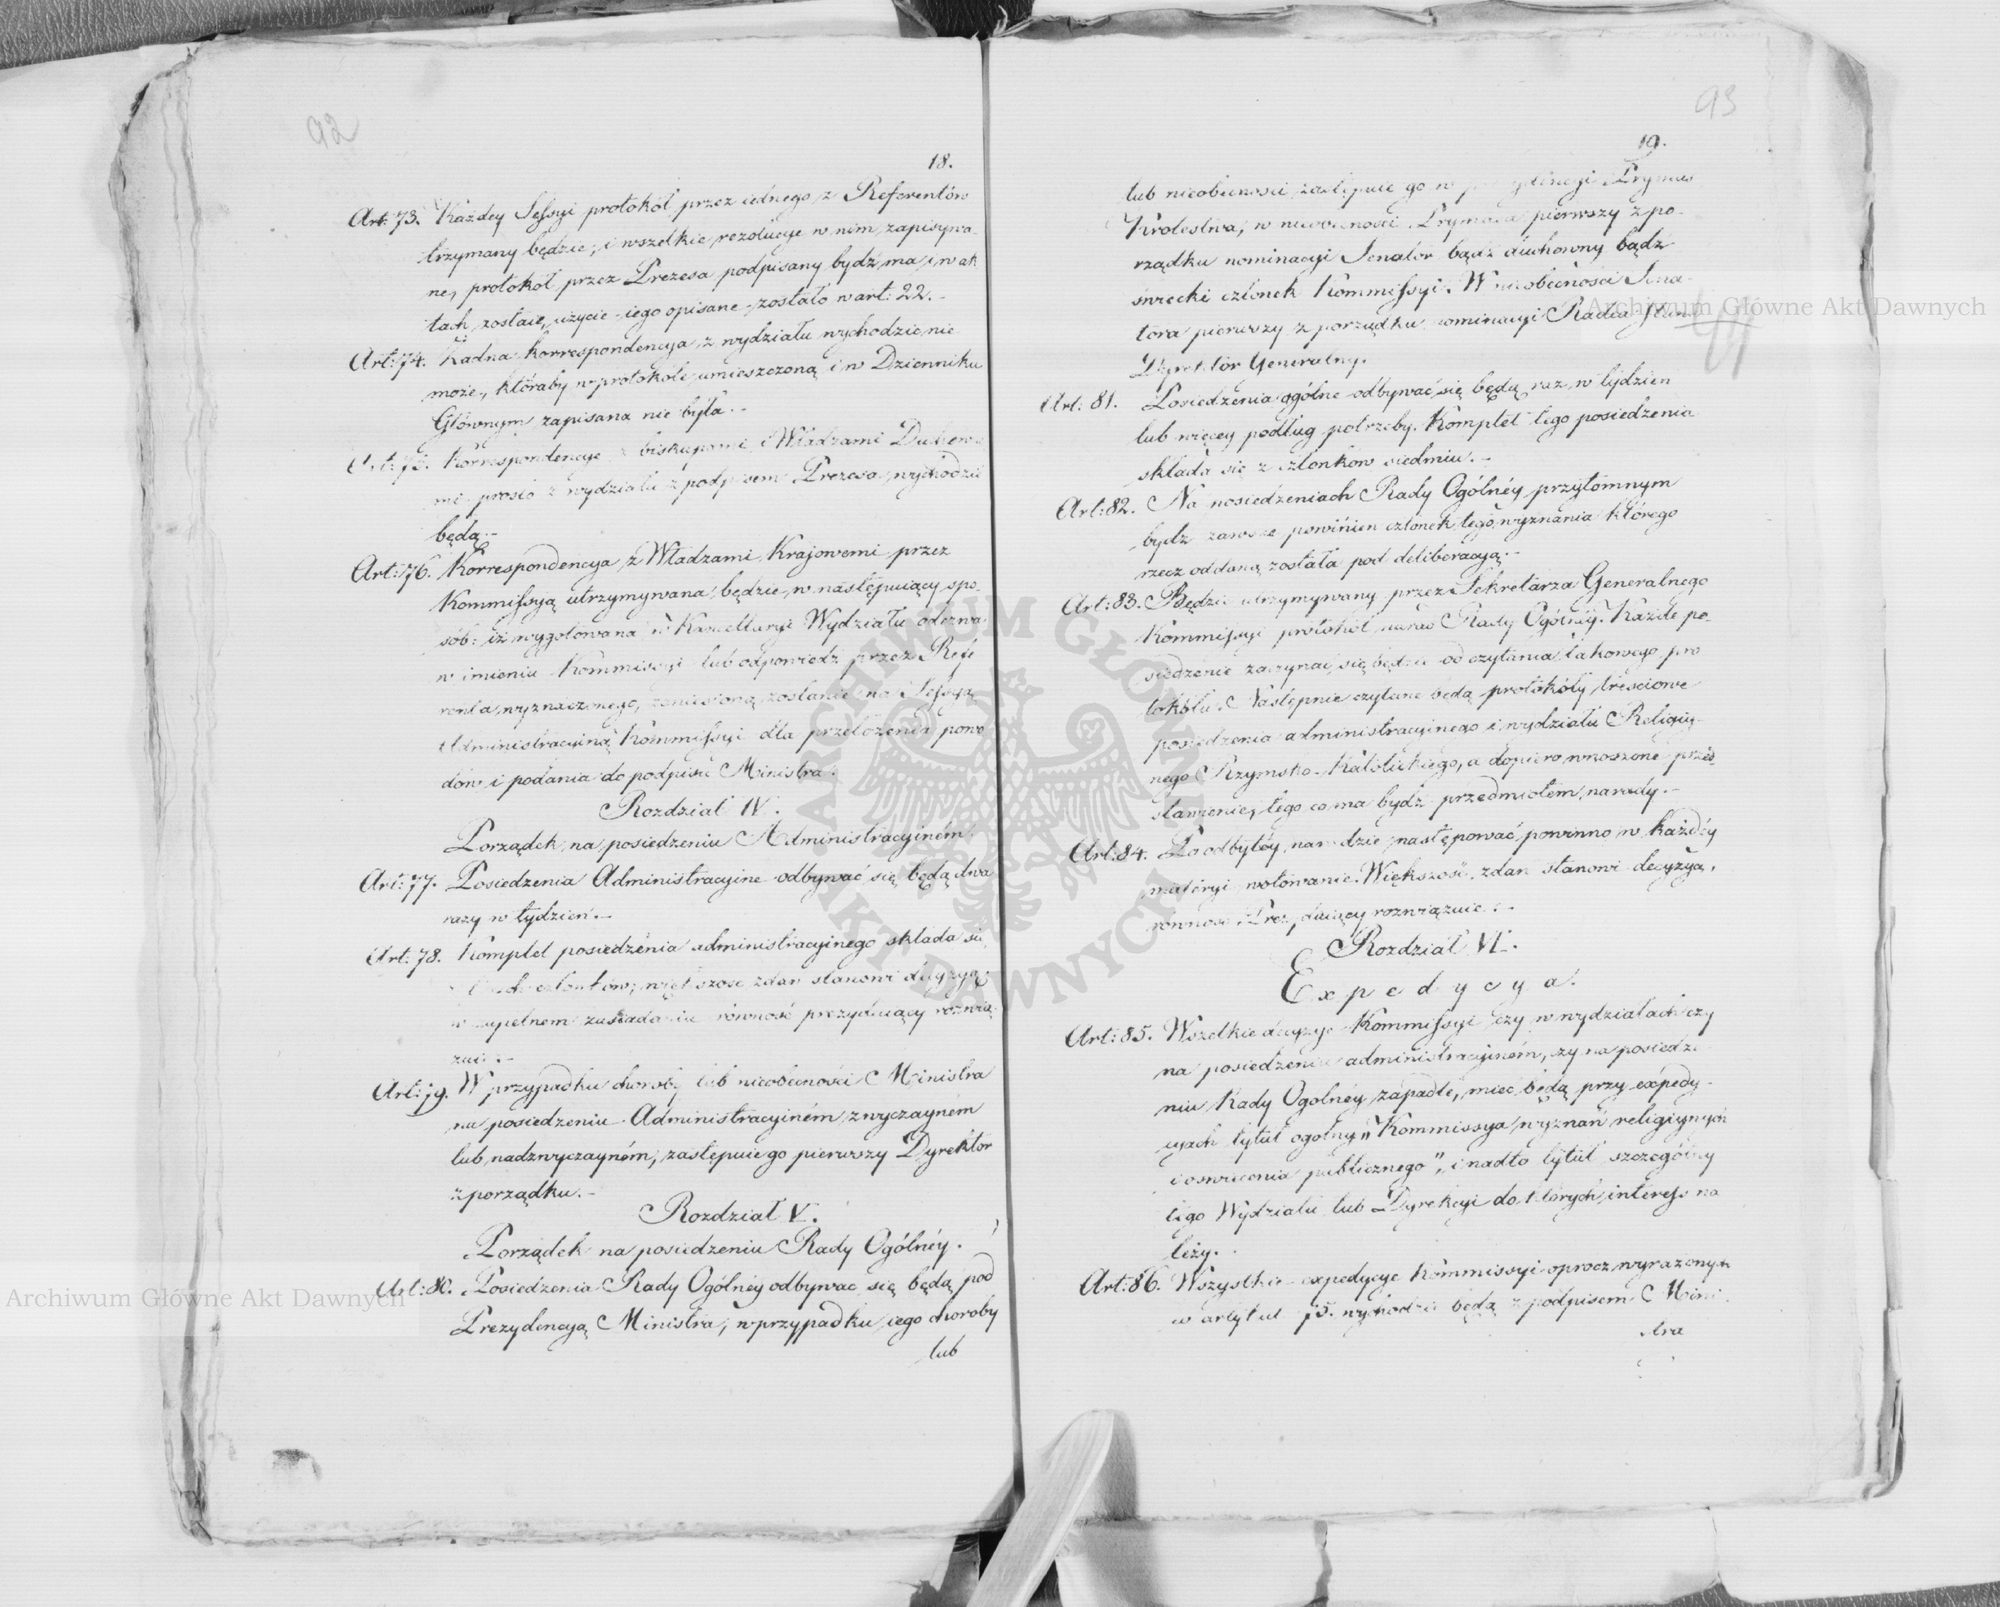 92
18.
Art: 73. Każdey Sessyi protokół przez iednego z Referentów
trzymany będzie, i wszelkie rezolucye w nim zapisywa-
ne, protokół przez Prezesa podpisany bydź ma, i w ak
tach zostaie, użycie iego opisane zostało w art: 22.-
Art: 74. Żadna korrespondencya z wydziału wychodzić nie
może, któraby w protokóle umieszczoną i w Dzienniku
Głównym zapisana nie była.-
Art: 75. Korrespondencye z biskupami i Władzami Duchow
mi prosto z wydziału z podpisem Prezesa wychodzić
będą.-
Art: 76. Korrespondencya z Władzami Krajowemi przez
Kommissyą utrzymywana, będzie w następuiący spo-
sób: iż wygotowana w Kancellaryi Wydziału odezwa
w imieniu Kommissyi lub odpowiedź przez Refe
renta wyznaczonego, zaniesioną zostanie na Sessyą
Administracyiną Kommissyi dla przełożenia powo
dów i podania do podpisu Ministra.
Rozdział IV.
Porządek na posiedzeniu Administracyiném.
Art: 77. Posiedzenia Administracyine odbywać się będą dwa
razy w tydzień.-
Art: 78. Komplet posiedzenia administracyinego składa się
członków; większość zdań stanowi decyzyą;
w zupełnem zasiadaniu równość prezyduiący rozwią
zuie.-
Art: 79. W przypadku choroby lub nieobecności Ministra
na posiedzeniu Administracyiném zwyczayném
lub nadzwyczayném, zastępuie go pierwszy Dyrektor
z porządku.-
Rozdział V.
Porządek na posiedzeniu Rady Ogólnéy.
Art: 80. Posiedzenia Rady Ogólnéy odbywać się będą pod
Prezydencyą Ministra, w przypadku iego choroby
lub
93
19.
lub nieobecności zastępuie go w prezydencyi Prymas
Królestwa; w nieobecności Prymasa pierwszy z po-
rządku nominacyi Senator bądź duchowny bądź
świecki członek Kommissyi. W nieobecności Sena-
tora pierwszy z porządku nominacyi Radca Stanu
Dyrektor Generalny.
Art: 81. Posiedzenia ogólne odbywać się będą raz w tydzień
lub więcey podług potrzeby. Komplet tego posiedzenia
składa się z członków siedmiu.-
Art: 82. Na posiedzeniach Rady Ogólnéy przytomnym
bydź zawsze powinien członek tego wyznania którego
rzecz oddaną została pod deliberacyą.-
Art: 83. Będzie utrzymywany przez Sekretarza Generalnego
Kommissyi protokół narad Rady Ogólnéy. Każde po-
siedzenie zaczynać się będzie od czytania takowego pro
tokółu. Następnie czytane będą protokóły treściowe
posiedzenia administracyinego i wydziału Religiy-
nego Rzymsko-Katolickiego, a dopiero wnoszone przed-
stawienie, tego co ma bydź przedmiotem narady.-
Art: 84. Po odbytéy naradzie, następować powinno w każdéy
materyi wotowanie. Większość zdań stanowi decyzyą,
równość Prezyduiący rozwiązuie.-
Rozdział VI.
Expedycya.
Art: 85. Wszelkie decyzye Kommissyi czy w wydziałach czy
na posiedzeniu administracyiném, czy na posiedze-
niu Rady Ogólnéy zapadłe, mieć będą przy expedy-
cyach tytuł ogólny „Kommissya wyznań religiynych
i oświecenia publicznego”, i nadto tytuł szczególny
tego Wydziału lub Dyrekcyi do których interess na
leży.
Art: 86. Wszystkie expedycye Kommissyi oprócz wyrażonych
w artykule 75. wychodzić będą z podpisem Mini
stra
Archiwum Główne Akt Dawnych
Archiwum Główne Akt Dawnych
ARCHIWUM GŁÓWNE AKT DAWNYCH